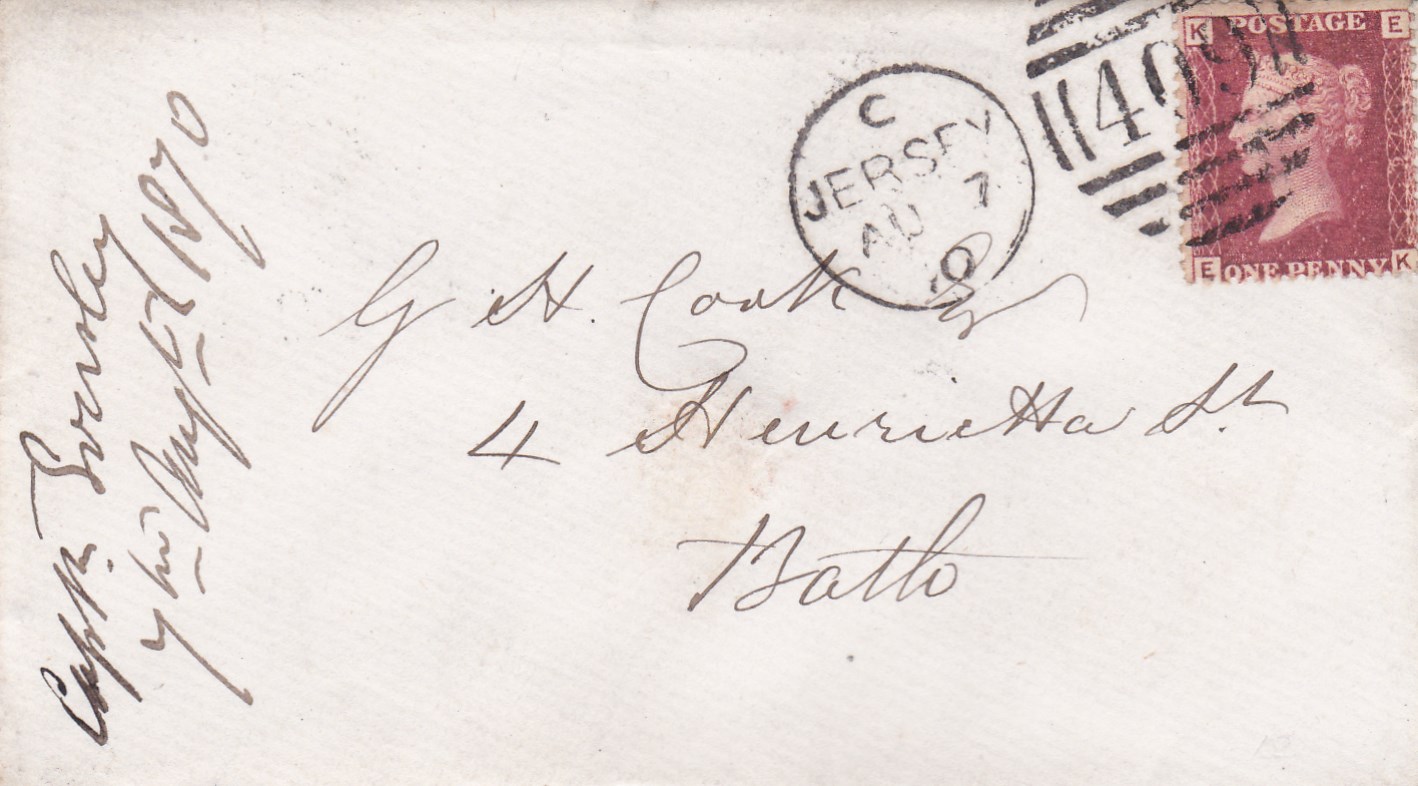 C
JERSEY
AU 7
70
409
K POSTAGE E
E ONE PENNY K
G H. Cook Esq
4 Henrietta St.
Bath
Captn
7th Augst 1870